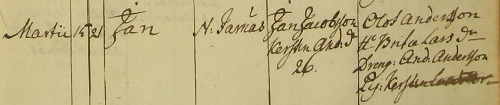 Martii 15 21 Jan N: Jarnås Jan Jacobsson Olof Andersson
Kerstin And. d H: Brita Lars dr
26. Dreng: And. Andersson
Pig: Kerstin